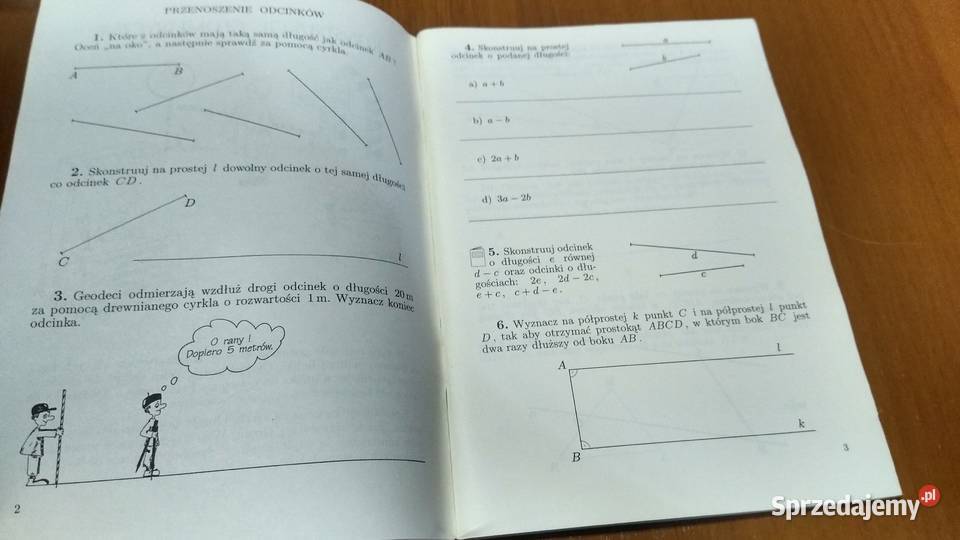 PRZENOSZENIE ODCINKÓW
1. Które z odcinków mają taką samą długość jak odcinek AB?
Oceń „na oko”, a następnie sprawdź za pomocą cyrkla.
A
B
2. Skonstruuj na prostej l dowolny odcinek o tej samej długości
co odcinek CD.
D
C
l
3. Geodeci odmierzają wzdłuż drogi odcinek o długości 20 m
za pomocą drewnianego cyrkla o rozwartości 1 m. Wyznacz koniec
odcinka.
O rany!
Dopiero 5 metrów.
2
4. Skonstruuj na prostej
odcinek o podanej długości:
a
b
a) a + b
b) a − b
c) 2a + b
d) 3a − 2b
5. Skonstruuj odcinek
o długości e równej
d − c oraz odcinki o dłu-
gościach: 2e, 2d − 2c,
e + c, c + d − e.
d
c
6. Wyznacz na półprostej k punkt C i na półprostej l punkt
D, tak aby otrzymać prostokąt ABCD, w którym bok BC jest
dwa razy dłuższy od boku AB.
A
l
B
k
3
Sprzedajemy.pl